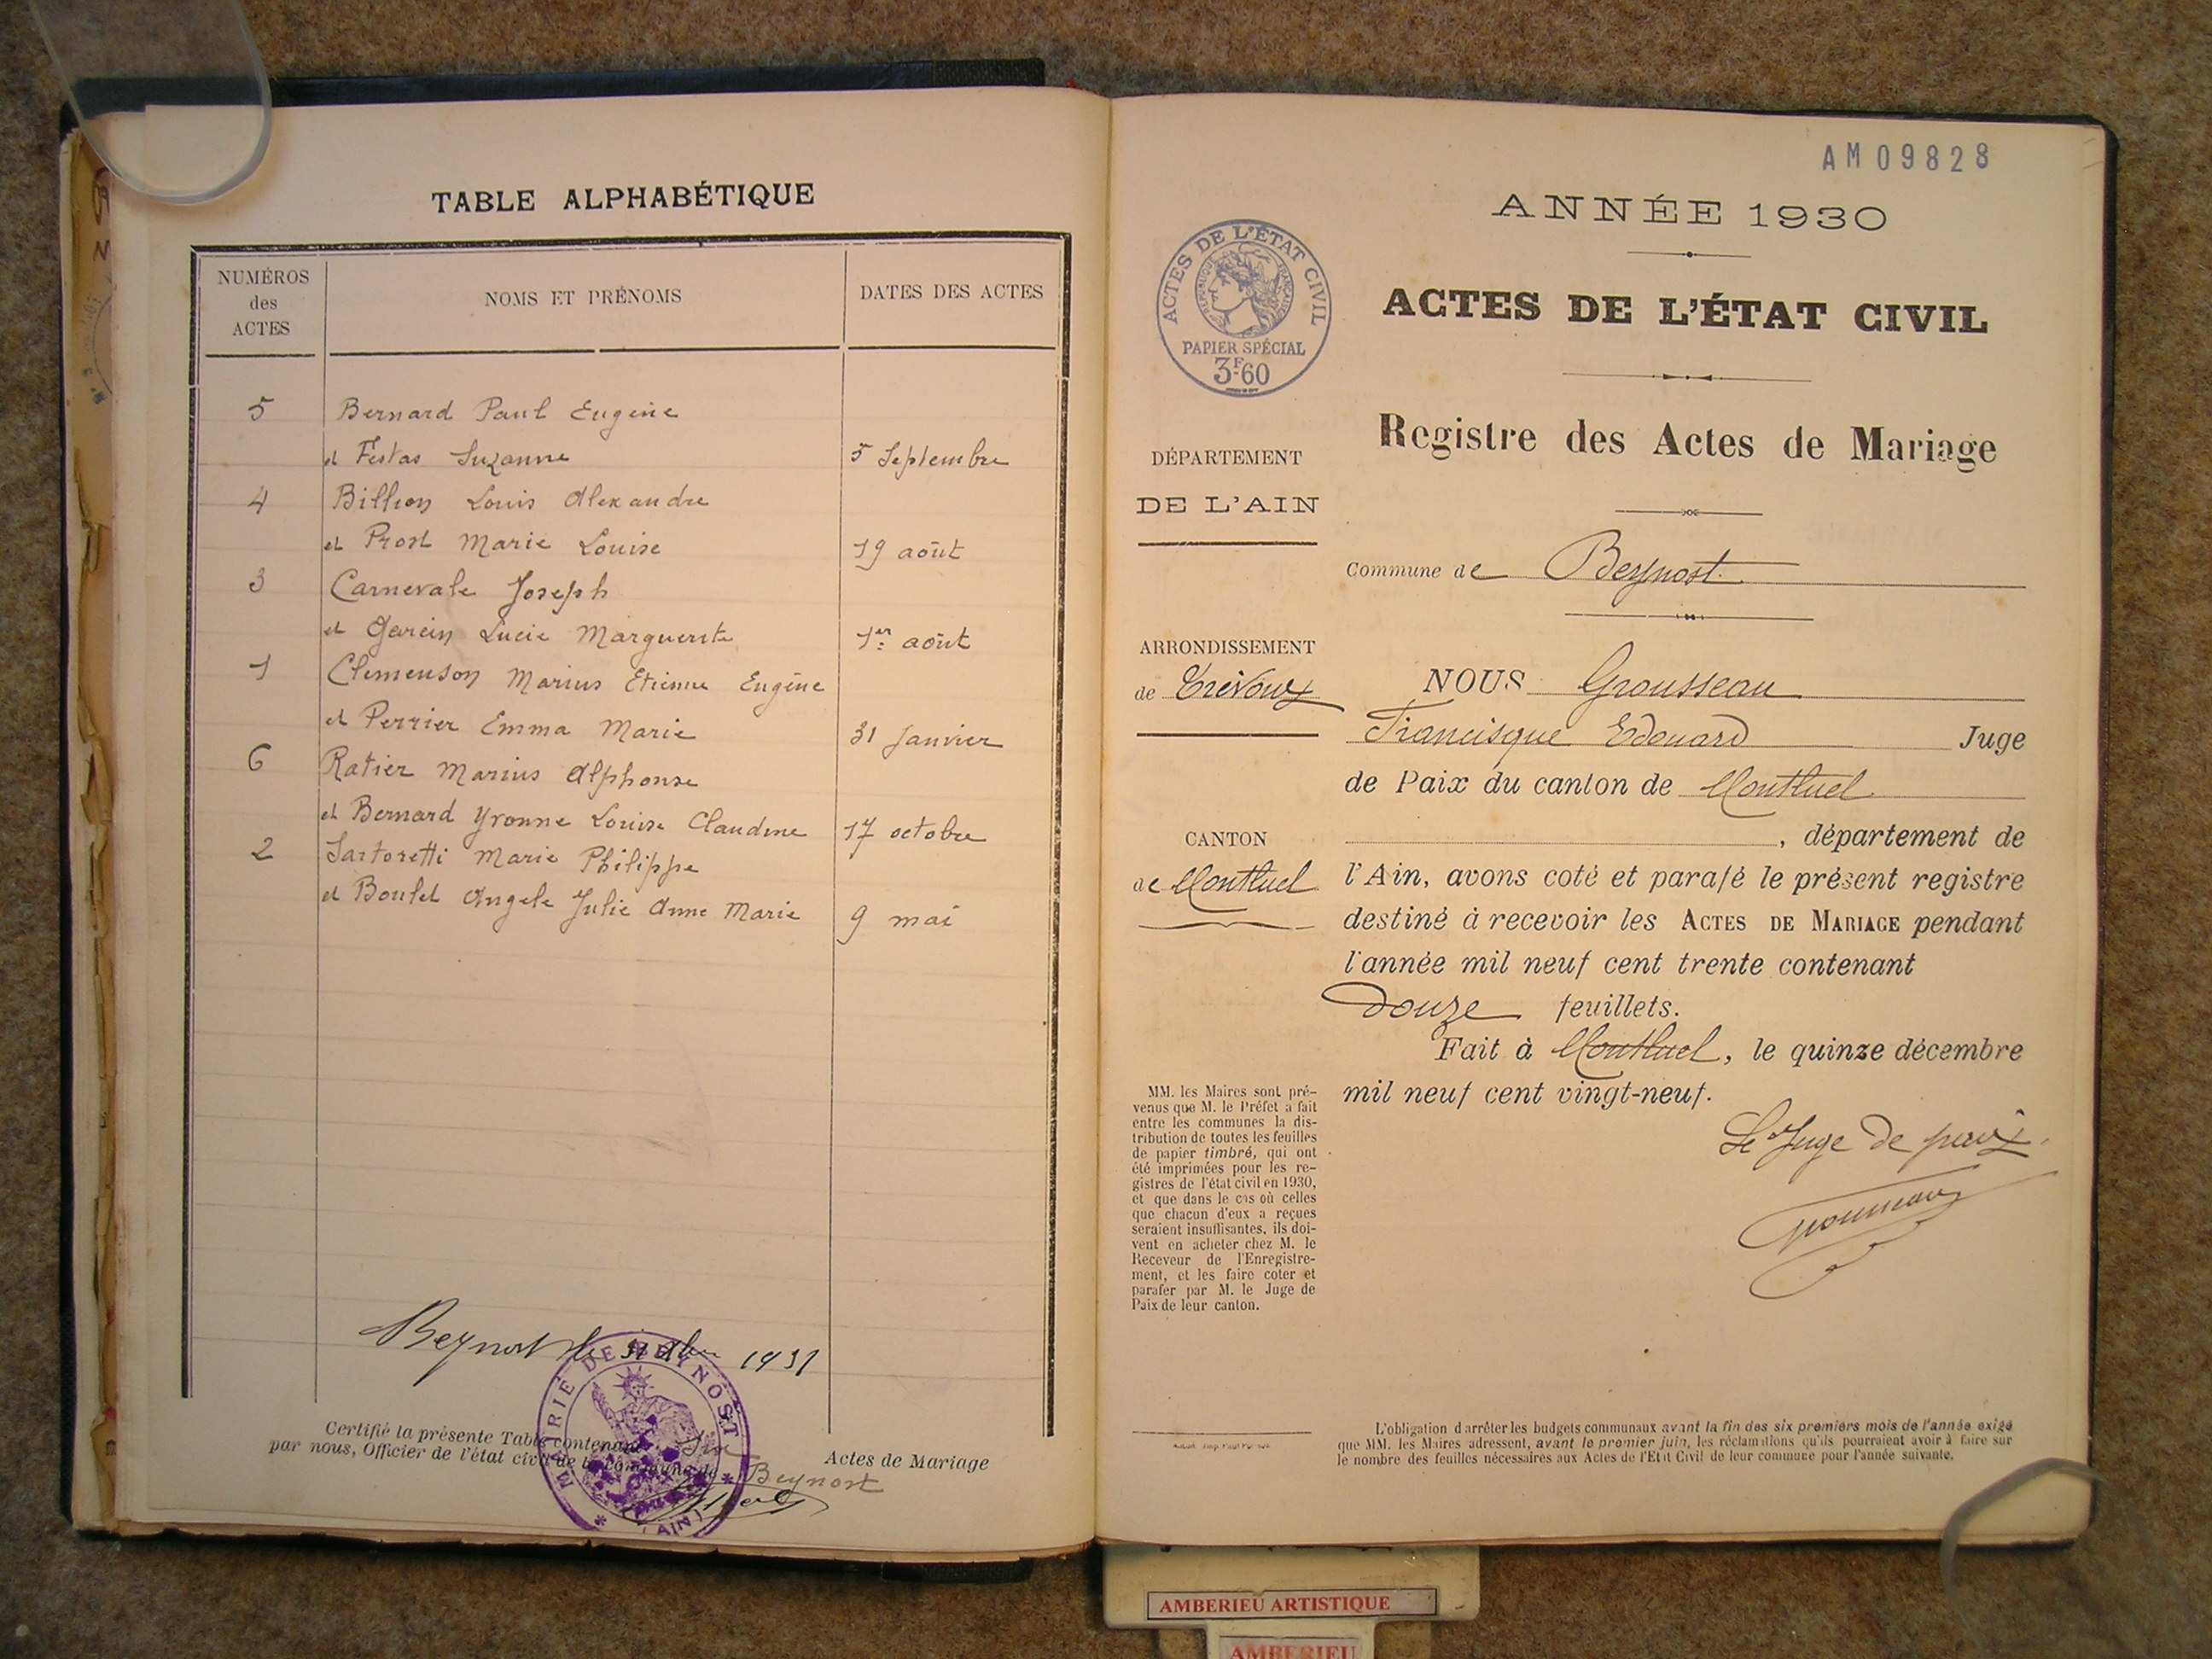 TABLE ALPHABÉTIQUE
NUMÉROS
des
ACTES
NOMS ET PRÉNOMS
DATES DES ACTES
5 Bernard Paul Eugène
et Festas Suzanne 5 Septembre
4 Billion Louis Alexandre
et Prost Marie Louise 19 août
3 Carnevale Joseph
et Garcin Lucie Marguerite 1er août
1 Clemenson Marius Etienne Eugène
et Perrier Emma Marie 31 Janvier
6 Ratier Marius Alphonse
et Bernard Yvonne Louise Claudine 17 octobre
2 Sartoretti Marie Philippe
et Boulet Angele Julie Anne Marie 9 mai
Beynost le 31 1931
MAIRIE DE BEYNOST
(AIN)
Certifié la présente Table contenant Six Actes de Mariage
par nous, Officier de l'état civil de la commune de Beynost
AM09828
ANNÉE 1930
ACTES DE L'ÉTAT CIVIL
Registre des Actes de Mariage
ACTES DE L'ÉTAT CIVIL
RÉPUBLIQUE FRANÇAISE
PAPIER SPÉCIAL
3F.60
DÉPARTEMENT
DE L'AIN
Commune de Beynost
ARRONDISSEMENT
de Trévoux
CANTON
de Montluel
NOUS Grousseau
Francisque Edouard Juge
de Paix du canton de Montluel
, département de
l'Ain, avons coté et parafé le présent registre
destiné à recevoir les ACTES DE MARIAGE pendant
l'année mil neuf cent trente contenant
Douze feuillets.
Fait à Montluel, le quinze décembre
mil neuf cent vingt-neuf.
Le Juge de paix.
MM. les Maires sont pré-
venus que M. le Préfet a fait
entre les communes la dis-
tribution de toutes les feuilles
de papier timbré, qui ont
été imprimées pour les re-
gistres de l'état civil en 1930,
et que dans le cas où celles
que chacun d'eux a reçues
seraient insuffisantes, ils doi-
vent en acheter chez M. le
Receveur de l'Enregistre-
ment, et les faire coter et
parafer par M. le Juge de
Paix de leur canton.
L'obligation d'arrêter les budgets communaux avant la fin des six premiers mois de l'année exige
que MM. les Maires adressent, avant le premier juin, les réclamations qu'ils pourraient avoir à faire sur
le nombre des feuilles nécessaires aux Actes de l'Etat Civil de leur commune pour l'année suivante.
AMBERIEU ARTISTIQUE
AMBERIEU